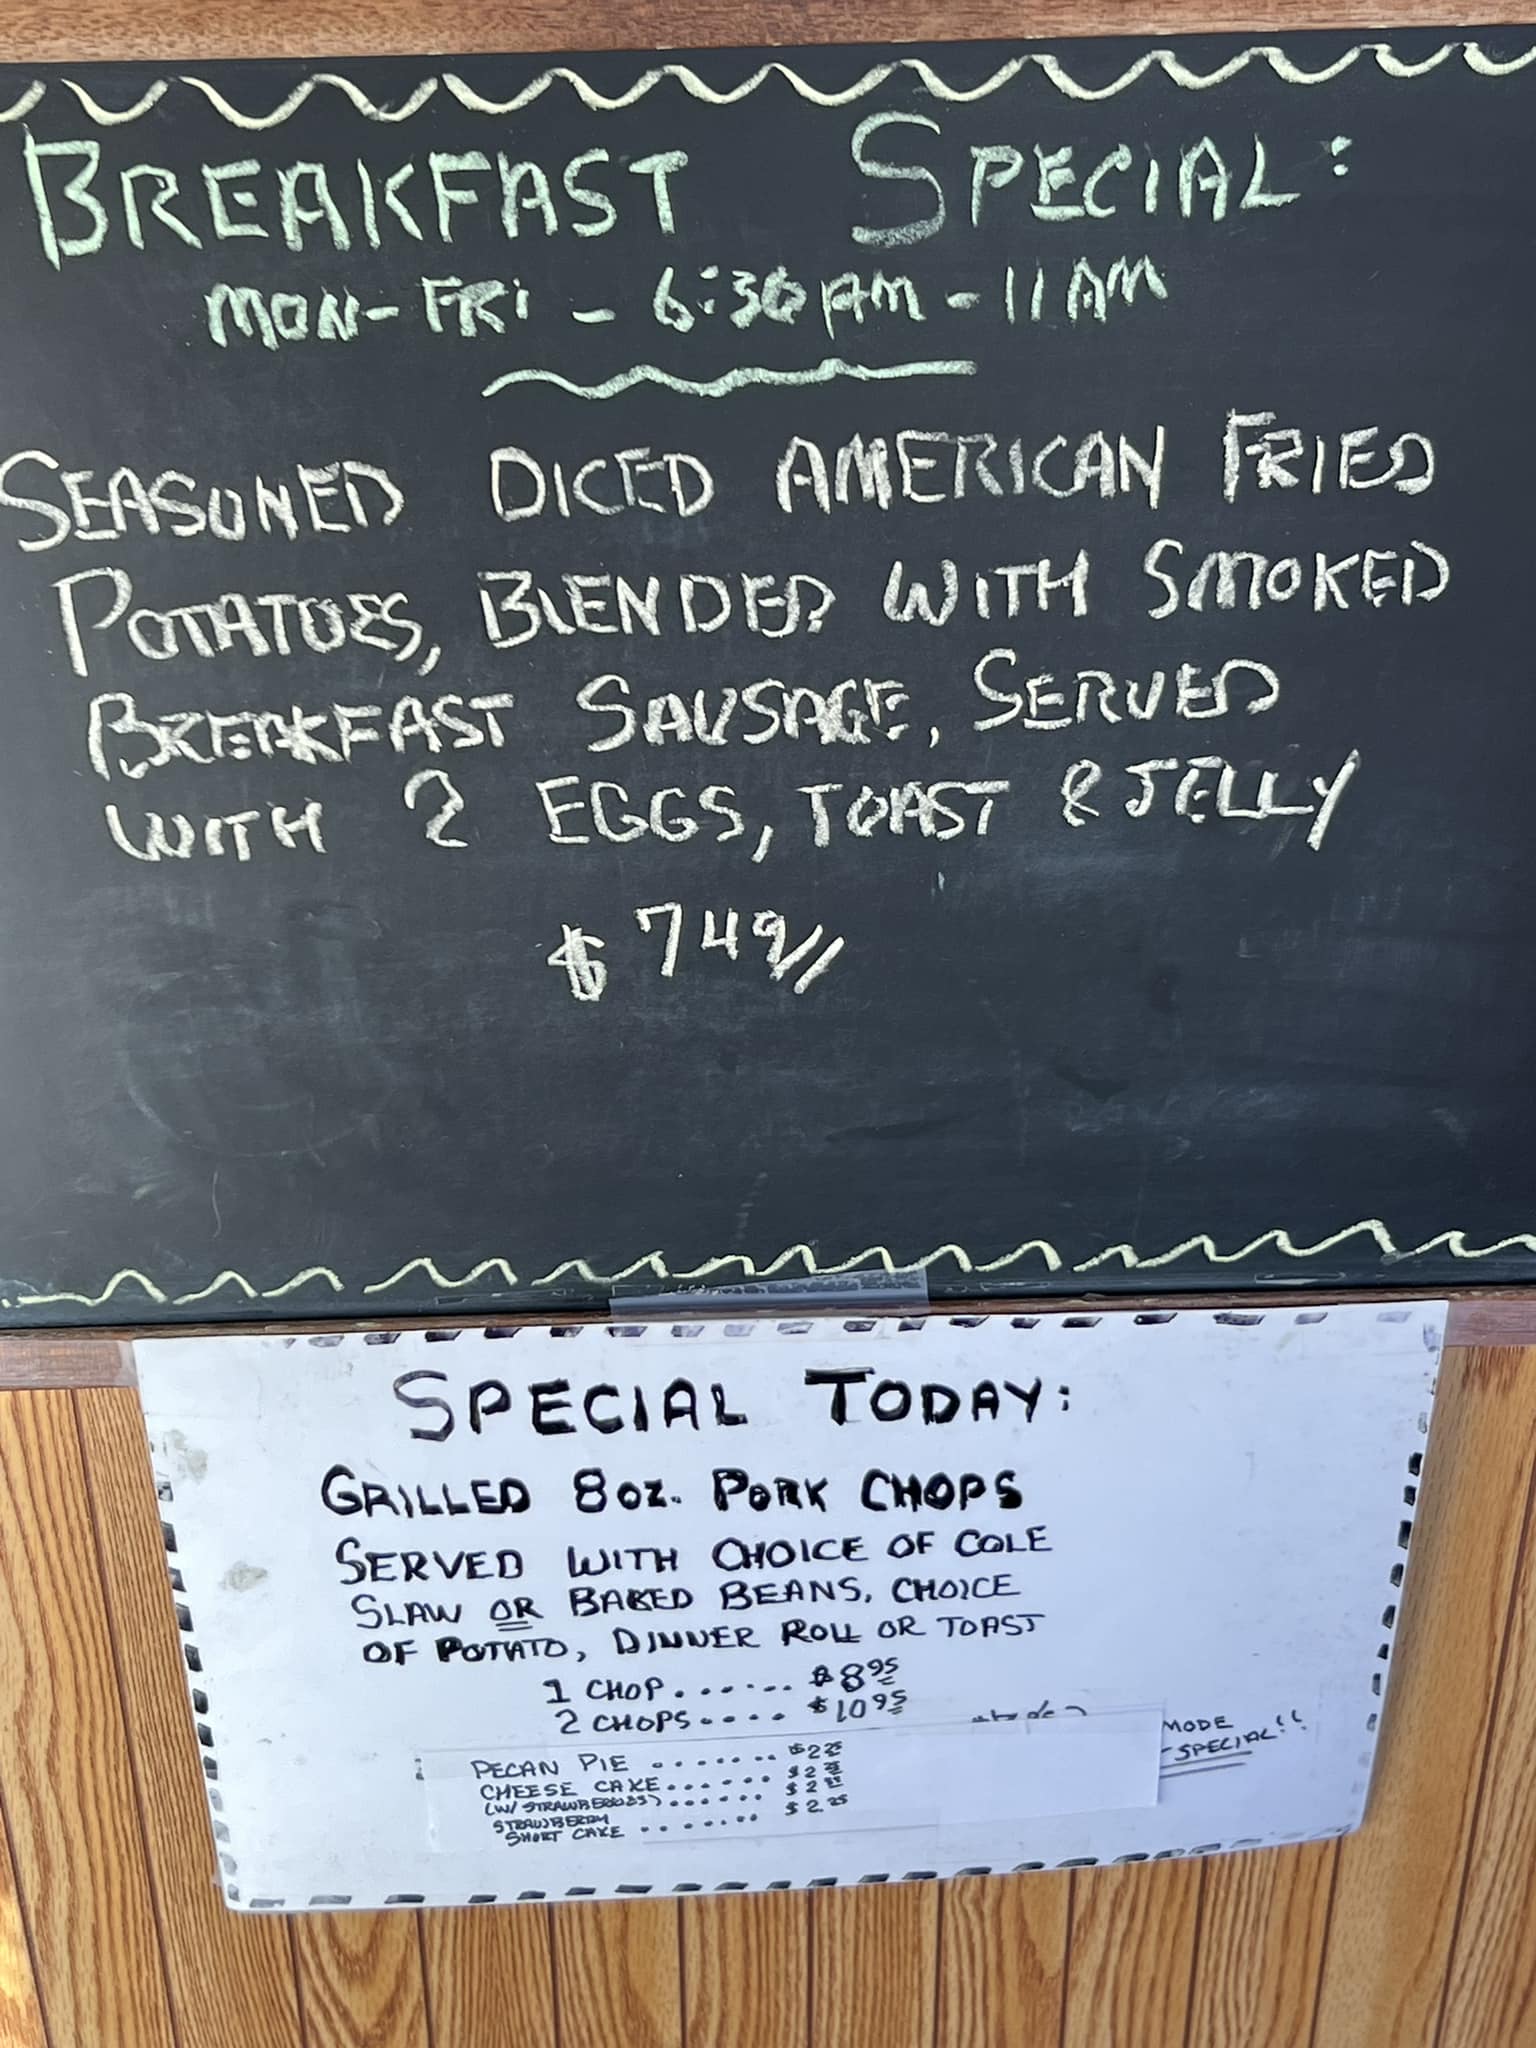 BREAKFAST SPECIAL:
MON-FRI - 6:30AM - 11AM
SEASONED DICED AMERICAN FRIED
POTATOES, BLENDED WITH SMOKED
BREAKFAST SAUSAGE, SERVED
WITH 2 EGGS, TOAST & JELLY
$749
SPECIAL TODAY:
GRILLED 8oz. PORK CHOPS
SERVED WITH CHOICE OF COLE
SLAW OR BAKED BEANS, CHOICE
OF POTATO, DINNER ROLL OR TOAST
1 CHOP....... $8 95
2 CHOPS..... $10 95
MODE
SPECIAL!!
PECAN PIE ........ $2 25
CHEESE CAKE....... $2
(W/ STRAWBERRIES)...... $2
STRAWBERRY
SHORT CAKE ....... $2.25